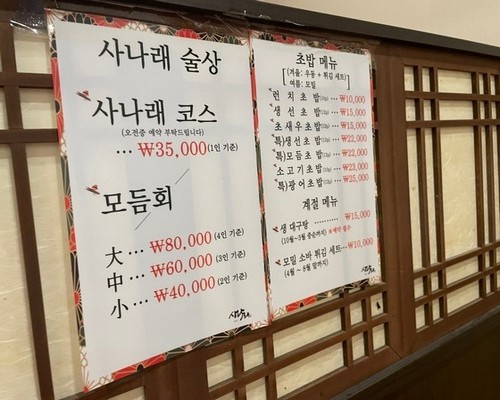 사나래 술상
사나래 코스
(오전중 예약 부탁드립니다)
... ₩35,000 (1인 기준)
모듬회
大 ... ₩80,000 (4인 기준)
中 ... ₩60,000 (3인 기준)
小 ... ₩40,000 (2인 기준)
초밥 메뉴
[겨울: 우동 + 튀김 세트
여름: 모밀]
런 치 초 밥 ... ₩10,000
생 선 초 밥 ... ₩15,000
초새우초밥 ... ₩15,000
특)생선초밥 ... ₩22,000
특)모듬초밥 ... ₩22,000
소고기초밥 ... ₩23,000
특)광어초밥 ... ₩25,000
계절 메뉴
생 대구탕 .......... ₩15,000
(10월~3월 중순까지)
모밀 소바 튀김 세트 ... ₩10,000
(4월 ~ 8월 말까지)